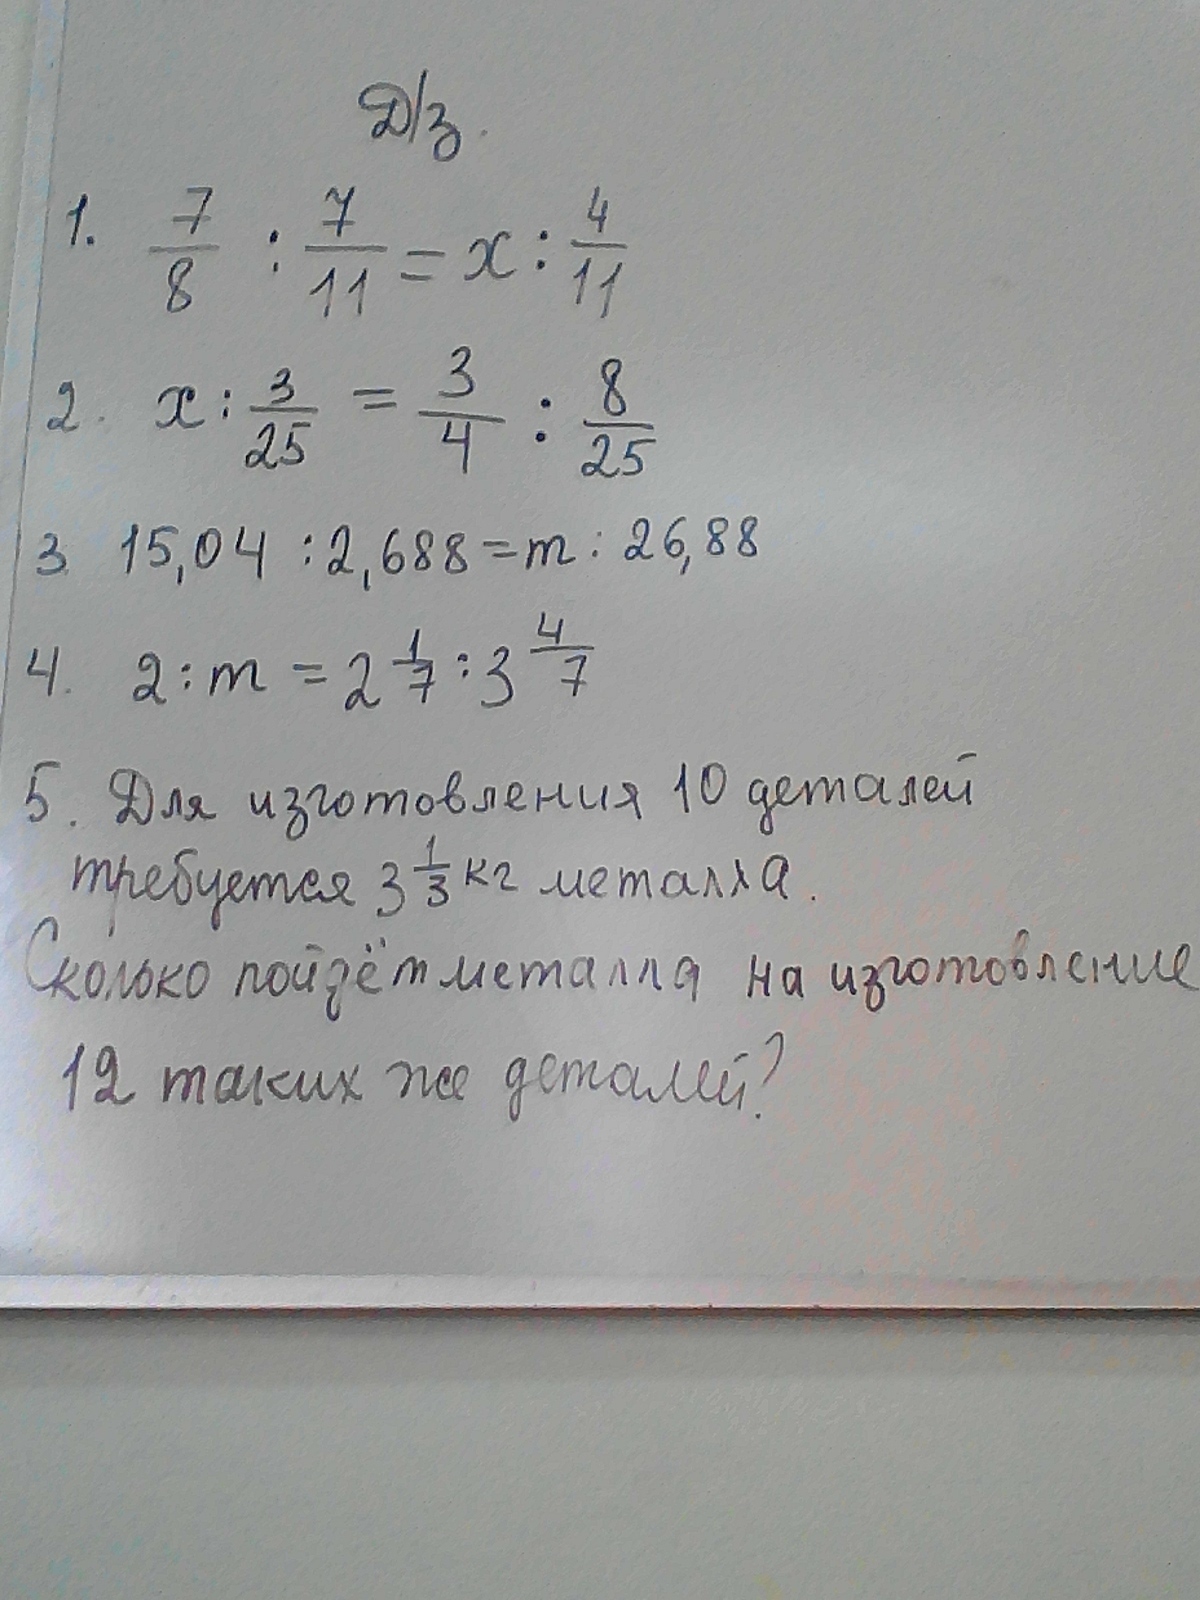 Д/з.
1. 7/8 : 7/11 = x : 4/11
2. x : 3/25 = 3/4 : 8/25
3. 15,04 : 2,688 = m : 26,88
4. 2 : m = 2 1/7 : 3 4/7
5. Для изготовления 10 деталей
требуется 3 1/3 кг металла.
Сколько пойдёт металла на изготовление
12 таких же деталей?